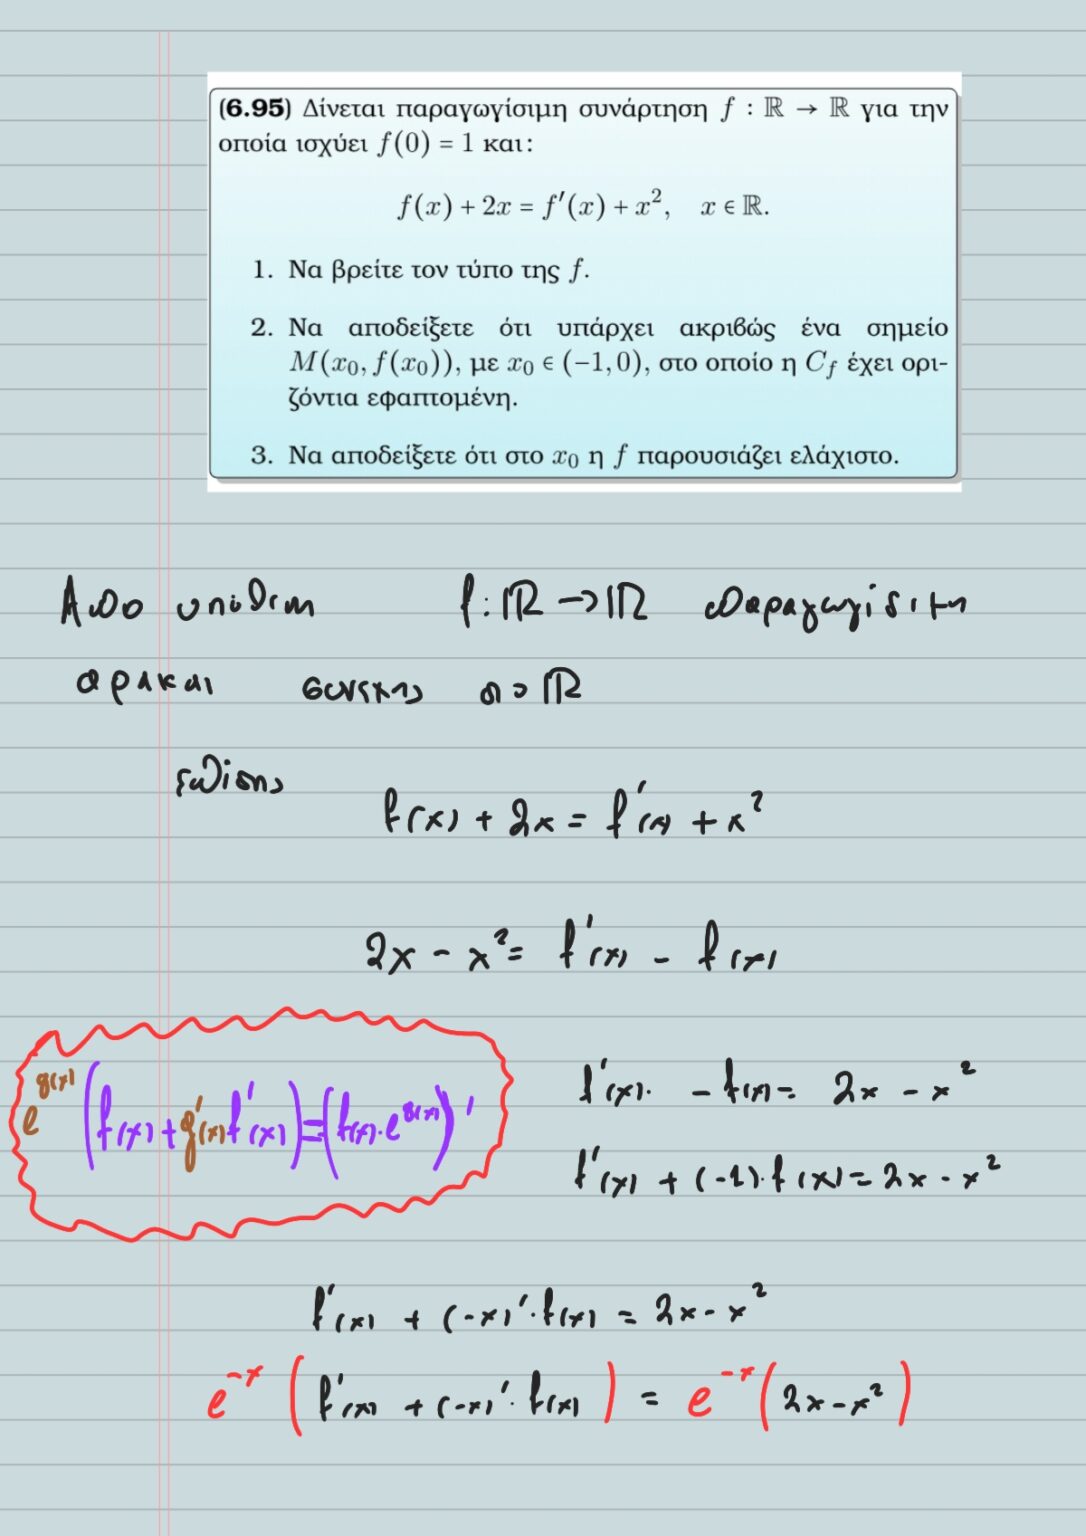 (6.95) Δίνεται παραγωγίσιμη συνάρτηση f : ℝ → ℝ για την
οποία ισχύει f(0) = 1 και:
f(x) + 2x = f′(x) + x², x ∈ ℝ.
1. Να βρείτε τον τύπο της f.
2. Να αποδείξετε ότι υπάρχει ακριβώς ένα σημείο
M(x₀, f(x₀)), με x₀ ∈ (−1, 0), στο οποίο η C_f έχει ορι-
ζόντια εφαπτομένη.
3. Να αποδείξετε ότι στο x₀ η f παρουσιάζει ελάχιστο.
Απο υποθεση f : ℝ → ℝ παραγωγίσιμη
αρα και συνεχης στο ℝ
επίσης
f(x) + 2x = f′(x) + x²
2x − x² = f′(x) − f(x)
f′(x) − f(x) = 2x − x²
e^{g(x)} (f(x) + g′(x) f′(x)) = (f(x)·e^{g(x)})′
f′(x) + (−1)·f(x) = 2x − x²
f′(x) + (−x)′·f(x) = 2x − x²
e^{−x} (f′(x) + (−x)′·f(x)) = e^{−x} (2x − x²)